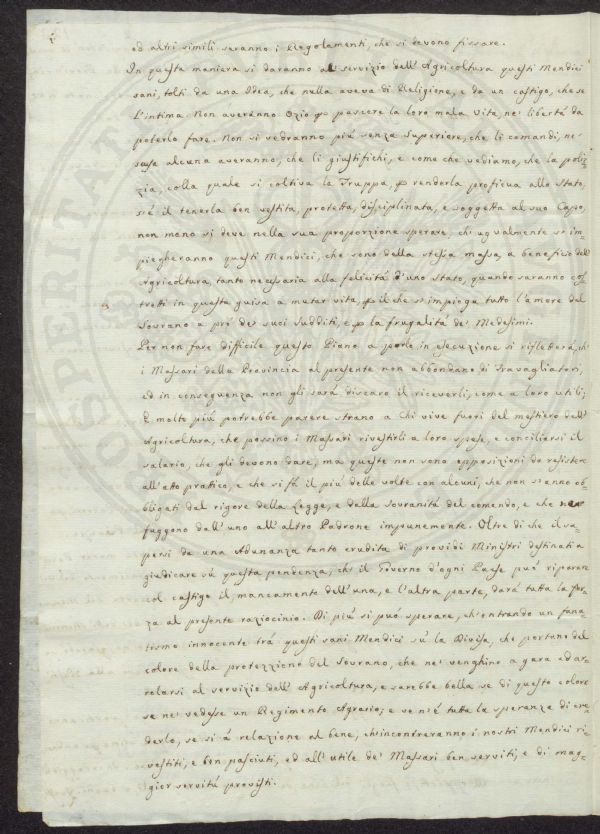 ed altri simili seranno i Regolamenti, che si devono fissare.
In questa maniera si daranno al servizio dell'Agricoltura questi Mendici
sani, tolti da una Idea, che nulla aveva di Religione, e da un castigo, che se
l'intima. Non averanno Ozio p pascere la loro mala vita, ne' libertà da
poterlo fare. Non si vedranno più senza superiore, che li comandi, ne'
scuse alcuna averanno, che li giustifichi, e come che vediamo, che la poli-
zia, colla quale si coltiva la Truppa, p renderla proficua allo stato,
si è il tenerla ben vestita, protetta, disciplinata, e soggetta al suo Capo,
non meno si deve nella sua proporzione sperare, chi ugualmente s'im-
piegheranno questi Mendici, che sono della stessa massa, a beneficio dell'
Agricoltura, tanto necessaria alla felicità d'uno stato, quando saranno cos-
tretti in questa guisa a mutar vita, p il che s'impiega tutto l'amore del
Sovrano a prò de' suoi sudditi, e p la frugalità de' Medesimi.
Per non fare difficile questo Piano a porlo in esecuzione si rifletterà, ch'
i Massari della Provincia al presente non abbondano di Travagliatori,
ed in conseguenza non gli sarà discaro il riceverli, come a loro utili;
E molto più potrebbe parere strano a chi vive fuori del mestiero dell'
Agricoltura, che possino i Massari rivestirli a loro spese, e conciliarsi il
salario, che gli devono dare, mà queste non sono opposizioni da resistere
all'atto pratico, e che si fà il più delle volte con alcuni, che non s'anno ob-
bligati dal rigore della Legge, e dalla sovranità del comando, e che
fuggono dall'uno all'altro Padrone impunemente. Oltre di che il sa-
persi da una Adunanza tanto erudita di providi Ministri destinati a
giudicare sù questa pendenza, ch'il Governo d'ogni Paese può riparare
col castigo il mancamento dell'una, e l'altra parte, darà tutta la for-
za al presente raziocinio. Di più si può sperare, ch'entrando un fana-
tismo innocente trà questi sani Mendici sù la Divisa, che portano del
colore della protezzione del Sovrano, che ne' venghino a gara ad ar-
rolarsi al servizio dell'Agricoltura, e sarebbe bella se di questo colore
se ne' vedesse un Regimento Agrario; e se n'è tutta la speranza di cre-
derlo, se si à relazione al bene, ch'incontreranno i nostri Mendici ri-
vestiti, e ben pasciuti, ed all'utile de' Massari ben serviti, e di mag-
gior servitù provisti.